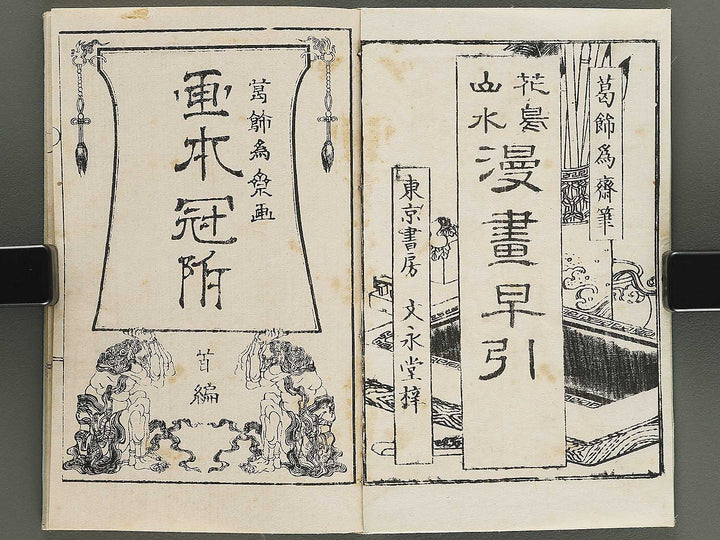 葛飾爲齋筆
花鳥
山水
漫畫早引
東京書房 文永堂梓
葛飾為斎画
画本冠附
首編